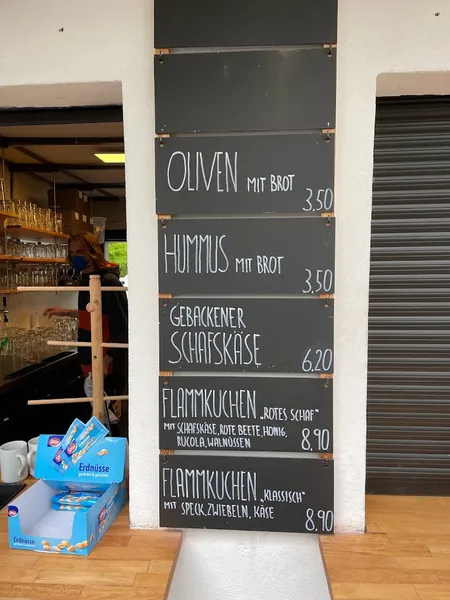 OLIVEN MIT BROT
3,50
HUMMUS MIT BROT
3,50
GEBACKENER
SCHAFSKÄSE
6,20
FLAMMKUCHEN „ROTES SCHAF"
MIT SCHAFSKÄSE, ROTE BEETE, HONIG,
RUCOLA, WALNÜSSEN
8,90
FLAMMKUCHEN „KLASSISCH"
MIT SPECK, ZWIEBELN, KÄSE
8,90
Erdnüsse
Erdnüsse